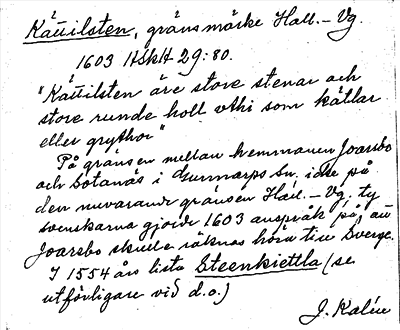 Kättilsten, gränsmärke Hall. – Vg.
1603 HSkH 29:80.
"Kättilsten äre store stenar och
store runde holl uthi som kätlar
eller grythor"
På gränsen mellan hemmanen Joarsbo
och Sotanäs i Gunnarps Sn. icke på
den nuvarande gränsen Hall. – Vg., ty
svenskarna gjorde 1603 anspråk på, att
Joarsbo skulle räknas höra till Sverge.
I 1554 års lista Steenkiettla (se
utförligare vid d.o.)
J. Kalén